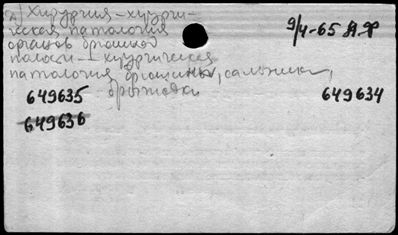 а) Хирургия - хирурги-
ческая патология
органов брюшной
полости - хирургическая
патология брюшины, сальника,
брыжейки
9/4-65
649635
649634
649636